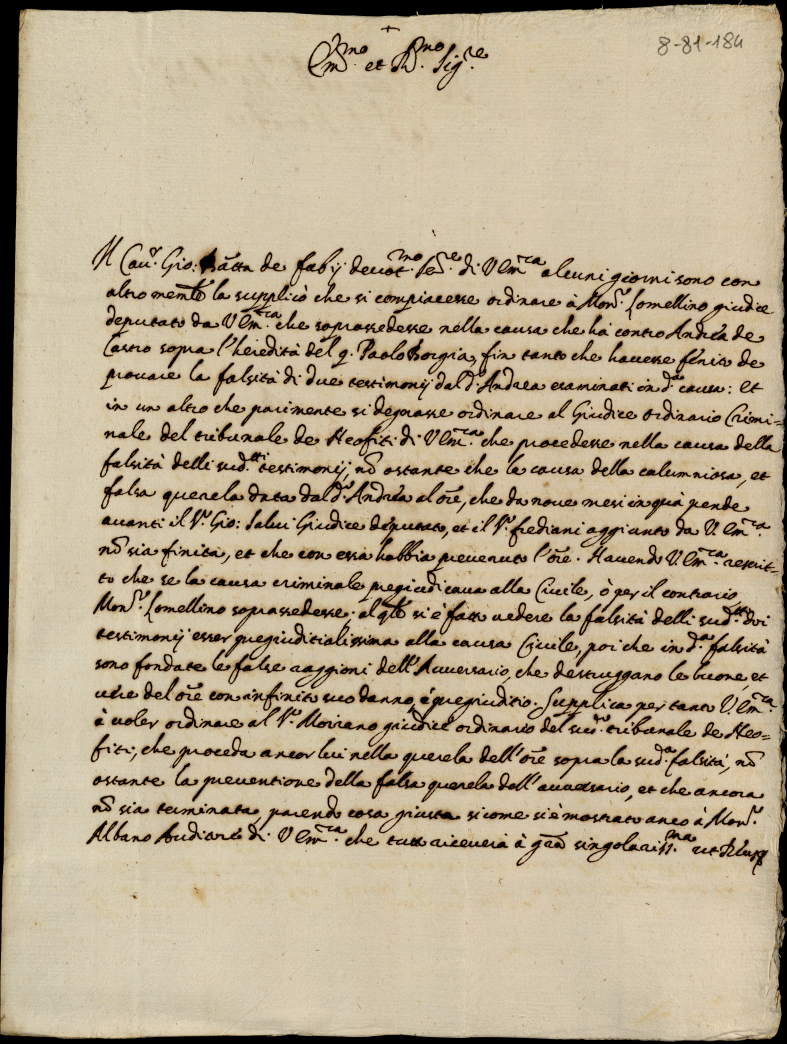 8-81-184
+
Em.mo et R.mo Sig.re
Il Cau.r Gio: Batta de fabij deuot.mo se.re di V Em.ca alcuni giorni sono con
altro mem.le la supplicò che si compiacesse ordinare à Mon.r Lomellino giudice
deputato da V Em.ca che soprassedesse nella causa che hà contro Andrea de
Castro sopra l'heredità del q. Paolo Borgia, fin tanto che hauesse fenito de
prouare la falsità di due testimonij dal d.o Andrea examinati in d.a causa: et
in un altro che parimente si degnasse ordinare al Giudice ordinario Crimi=
nale del tribunale de Neofiti di V Em.ca che procedesse nella causa della
falsità delli sud.tti testimonij, nõ ostante che la causa della calumniosa, et
falsa querela data dal d.o Andrea al ore, che da noue mesi in quà pende
auanti il S.r Gio: Salui Giudice deputato, et il S.r frediani aggiunto da V. Em.ca
nõ sia finita, et che con essa habbia preuenuto l'ore. Hauendo V Em.ca rescrit=
to che se la causa criminale pregiudicaua alla Ciuile, ò per il contrario,
Mon.r Lomellino soprassedesse, al q.le si è fatto uedere la falsità delli sud.tti doi
testimonij esser pregiuditialissima alla causa Ciuile, poi che in d.a falsità
sono fondate le false raggioni dell'Auuersario, che destruggano le buone, et
uere del ore con infinito suo danno, è pregiuditio. Supplica per tanto V. Em.ca
à uoler ordinare al S.r Moirano giudice ordinario del sud.o tribunale de Neo=
fiti, che proceda ancor lui nella querela dell'ore sopra la sud.a falsità, nõ
ostante la preuentione della falsa querela dell'auuersario, et che ancora
nõ sia terminata, parendo cosa giusta si come si è mostrato anco à Mon.r
Albano Auditore di V Em.ca che tutto riceuerà à gra singolariss.ma ut Deus